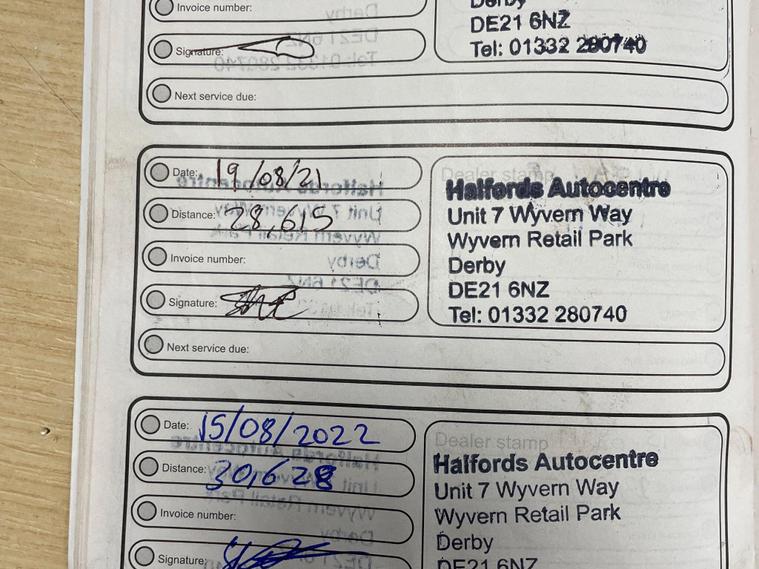 Invoice number:
Signature:
Next service due:
Derby
DE21 6NZ
Tel: 01332 280740
Date: 19/08/21
Distance: 28,615
Invoice number:
Signature:
Next service due:
Dealer stamp
Halfords Autocentre
Unit 7 Wyvern Way
Wyvern Retail Park
Derby
DE21 6NZ
Tel: 01332 280740
Date: 15/08/2022
Distance: 30,628
Invoice number:
Signature:
Dealer stamp
Halfords Autocentre
Unit 7 Wyvern Way
Wyvern Retail Park
Derby
DE21 6NZ